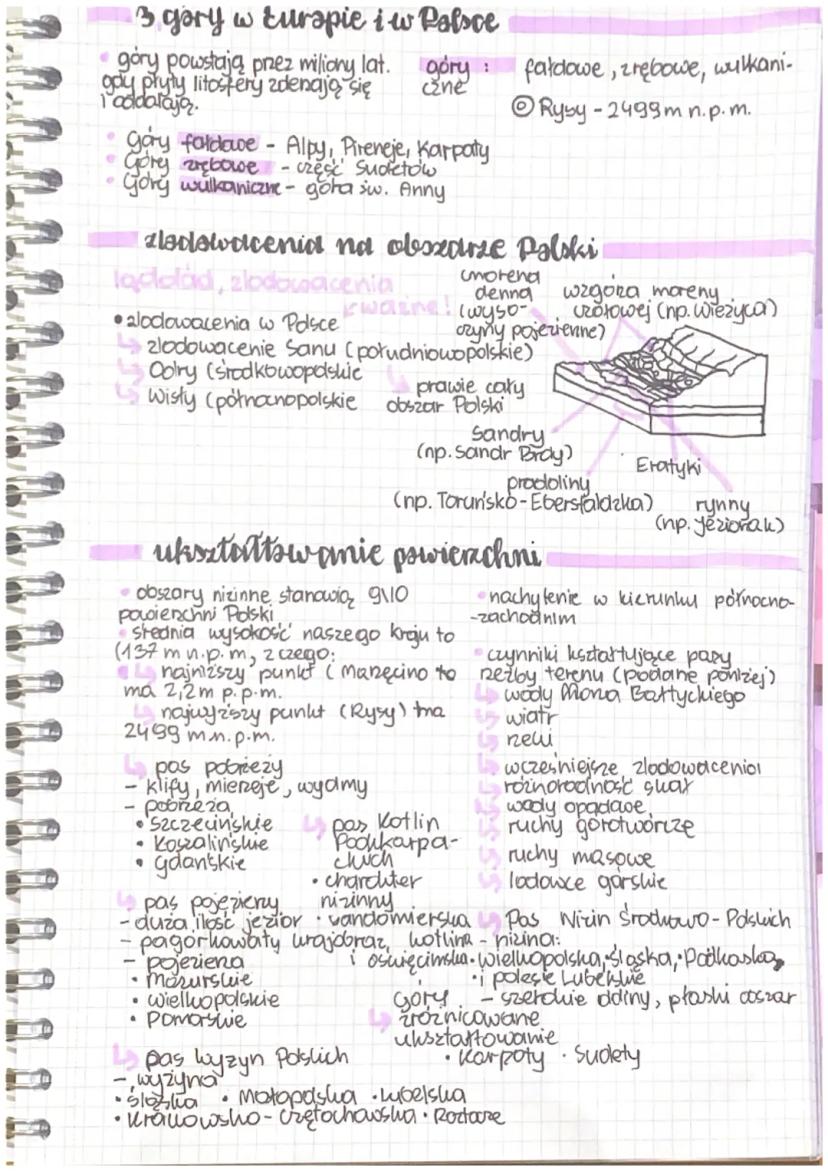 3 góry w Europie i w Polsce
góry powstają przez miliony lat.
gdy płyty litosfery zderzają się
i oddalają.
góry : fałdowe, zrębowe, wulkani-
czne
Rysy - 2499 m n.p.m.
Góry fałdowe - Alpy, Pireneje, Karpaty
Góry zrębowe - część Sudetów
Góry wulkaniczne - góra św. Anny
zlodowacenia na obszarze Polski
lądolód, zlodowacenia
ważne!
• zlodowacenia w Polsce
zlodowacenie Sanu (południowopolskie)
Odry (środkowopolskie
Wisły (północnopolskie
prawie cały
obszar Polski
morena
denna
(wyso-
czyzny pojezierne)
wzgórza moreny
czołowej (np. Wieżyca)
Sandry
(np. Sandr Brdy)
Eratyki
pradoliny
(np. Toruńsko-Ebersfaldzka)
rynny
(np. Jeziorak)
ukształtowanie powierzchni
obszary nizinne stanowią 9\10
powierzchni Polski
średnia wysokość naszego kraju to
(137 m n.p.m, z czego:
najniższy punkt (Marzęcino to
ma 2,2 m p.p.m.
najwyższy punkt (Rysy) ma
2499 m n.p.m.
pas pobrzeży
- klify, mierzeje, wydmy
- pobrzeża
• Szczecińskie
• Koszalińskie
• Gdańskie
pas Kotlin
Podkarpa-
ckich
• charakter
nizinny
• vandomierska
kotlina
i oświęcimska
pas pojezierzy
- duża ilość jezior
- pagórkowaty krajobraz
- pojezierza
• Mazurskie
• wielkopolskie
• Pomorskie
pas Wyżyn Polskich
- wyżyna
• Śląska • Małopolska • Lubelska
• Krakowsko-Częstochowska • Roztocze
nachylenie w kierunku północno-
-zachodnim
czynniki kształtujące pasy
rzeźby terenu (podane poniżej)
wody Morza Bałtyckiego
wiatr
rzeki
wcześniejsze zlodowacenia
różnorodność skał
wody opadowe
ruchy górotwórcze
ruchy masowe
lodowce górskie
Pas Nizin Środkowo-Polskich
- nizina:
• wielkopolska, śląska, • Podlaska,
• i polesie Lubelskie
- szerokie doliny, płaski obszar
góry
zróżnicowane
ukształtowanie
• Karpaty • Sudety